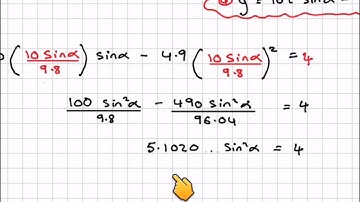 ② y = 10t sinα -
(10 sinα / 9.8) sinα - 4.9 (10 sinα / 9.8)² = 4
100 sin²α / 9.8 - 490 sin²α / 96.04 = 4
5.1020 .. sin²α = 4